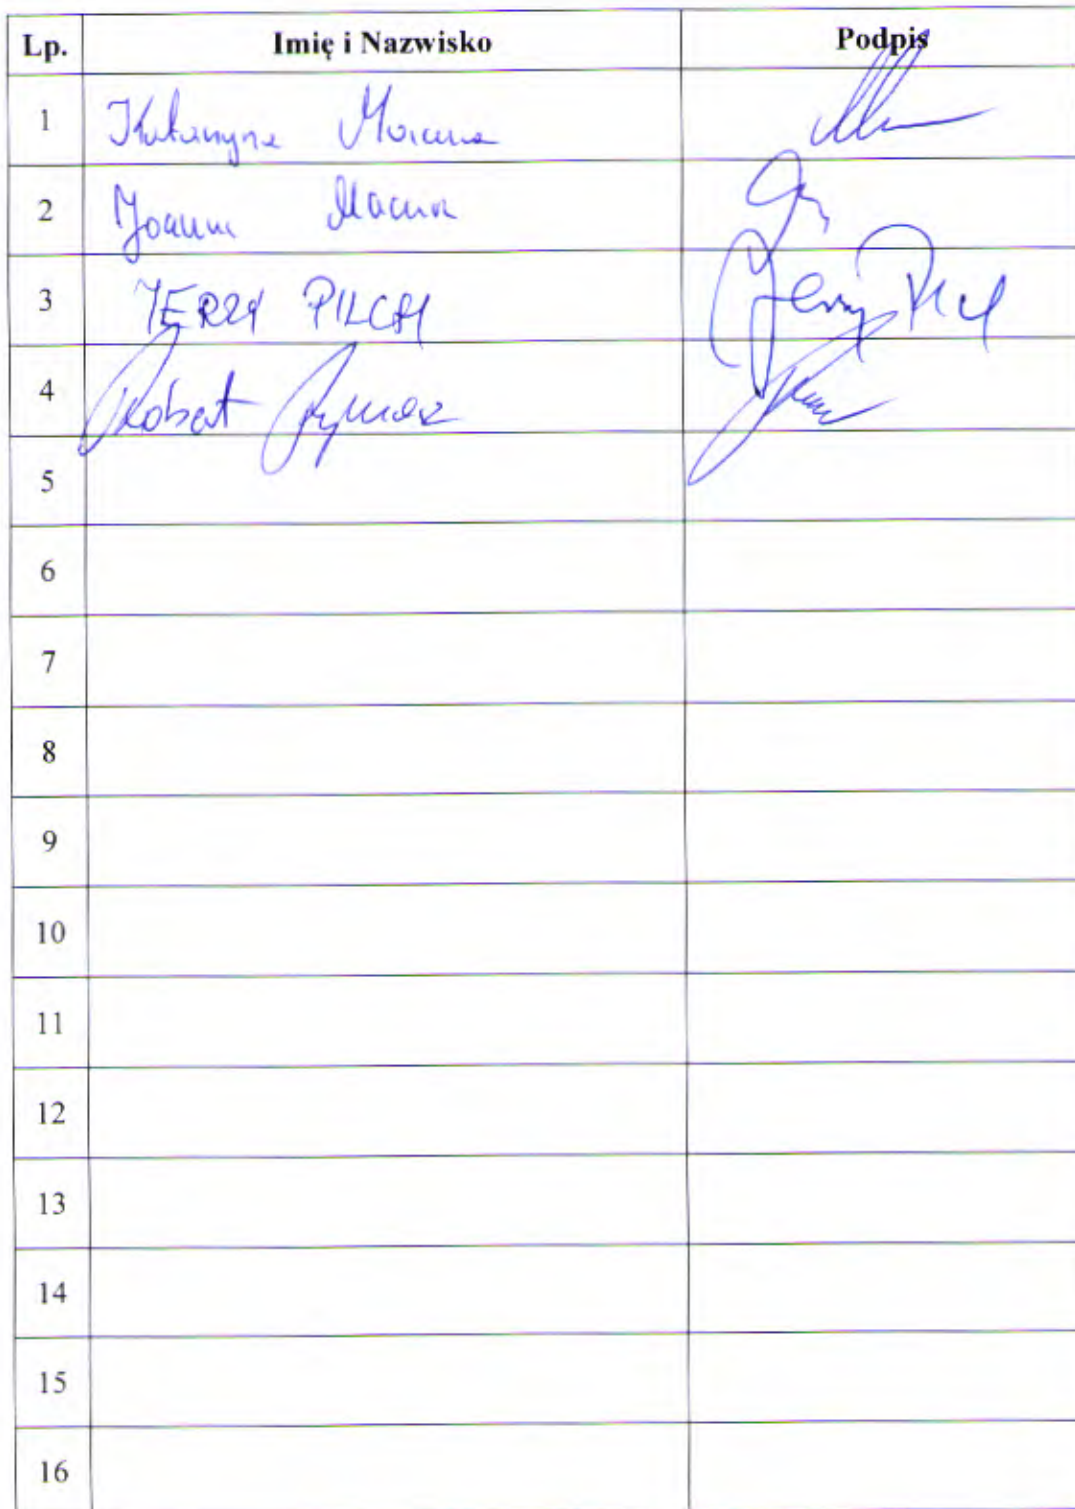 Lp. Imię i Nazwisko Podpis
1 Katarzyna
2 Joanna
3 JERZY PILCH Jerzy Pilch
4 Robert
5
6
7
8
9
10
11
12
13
14
15
16